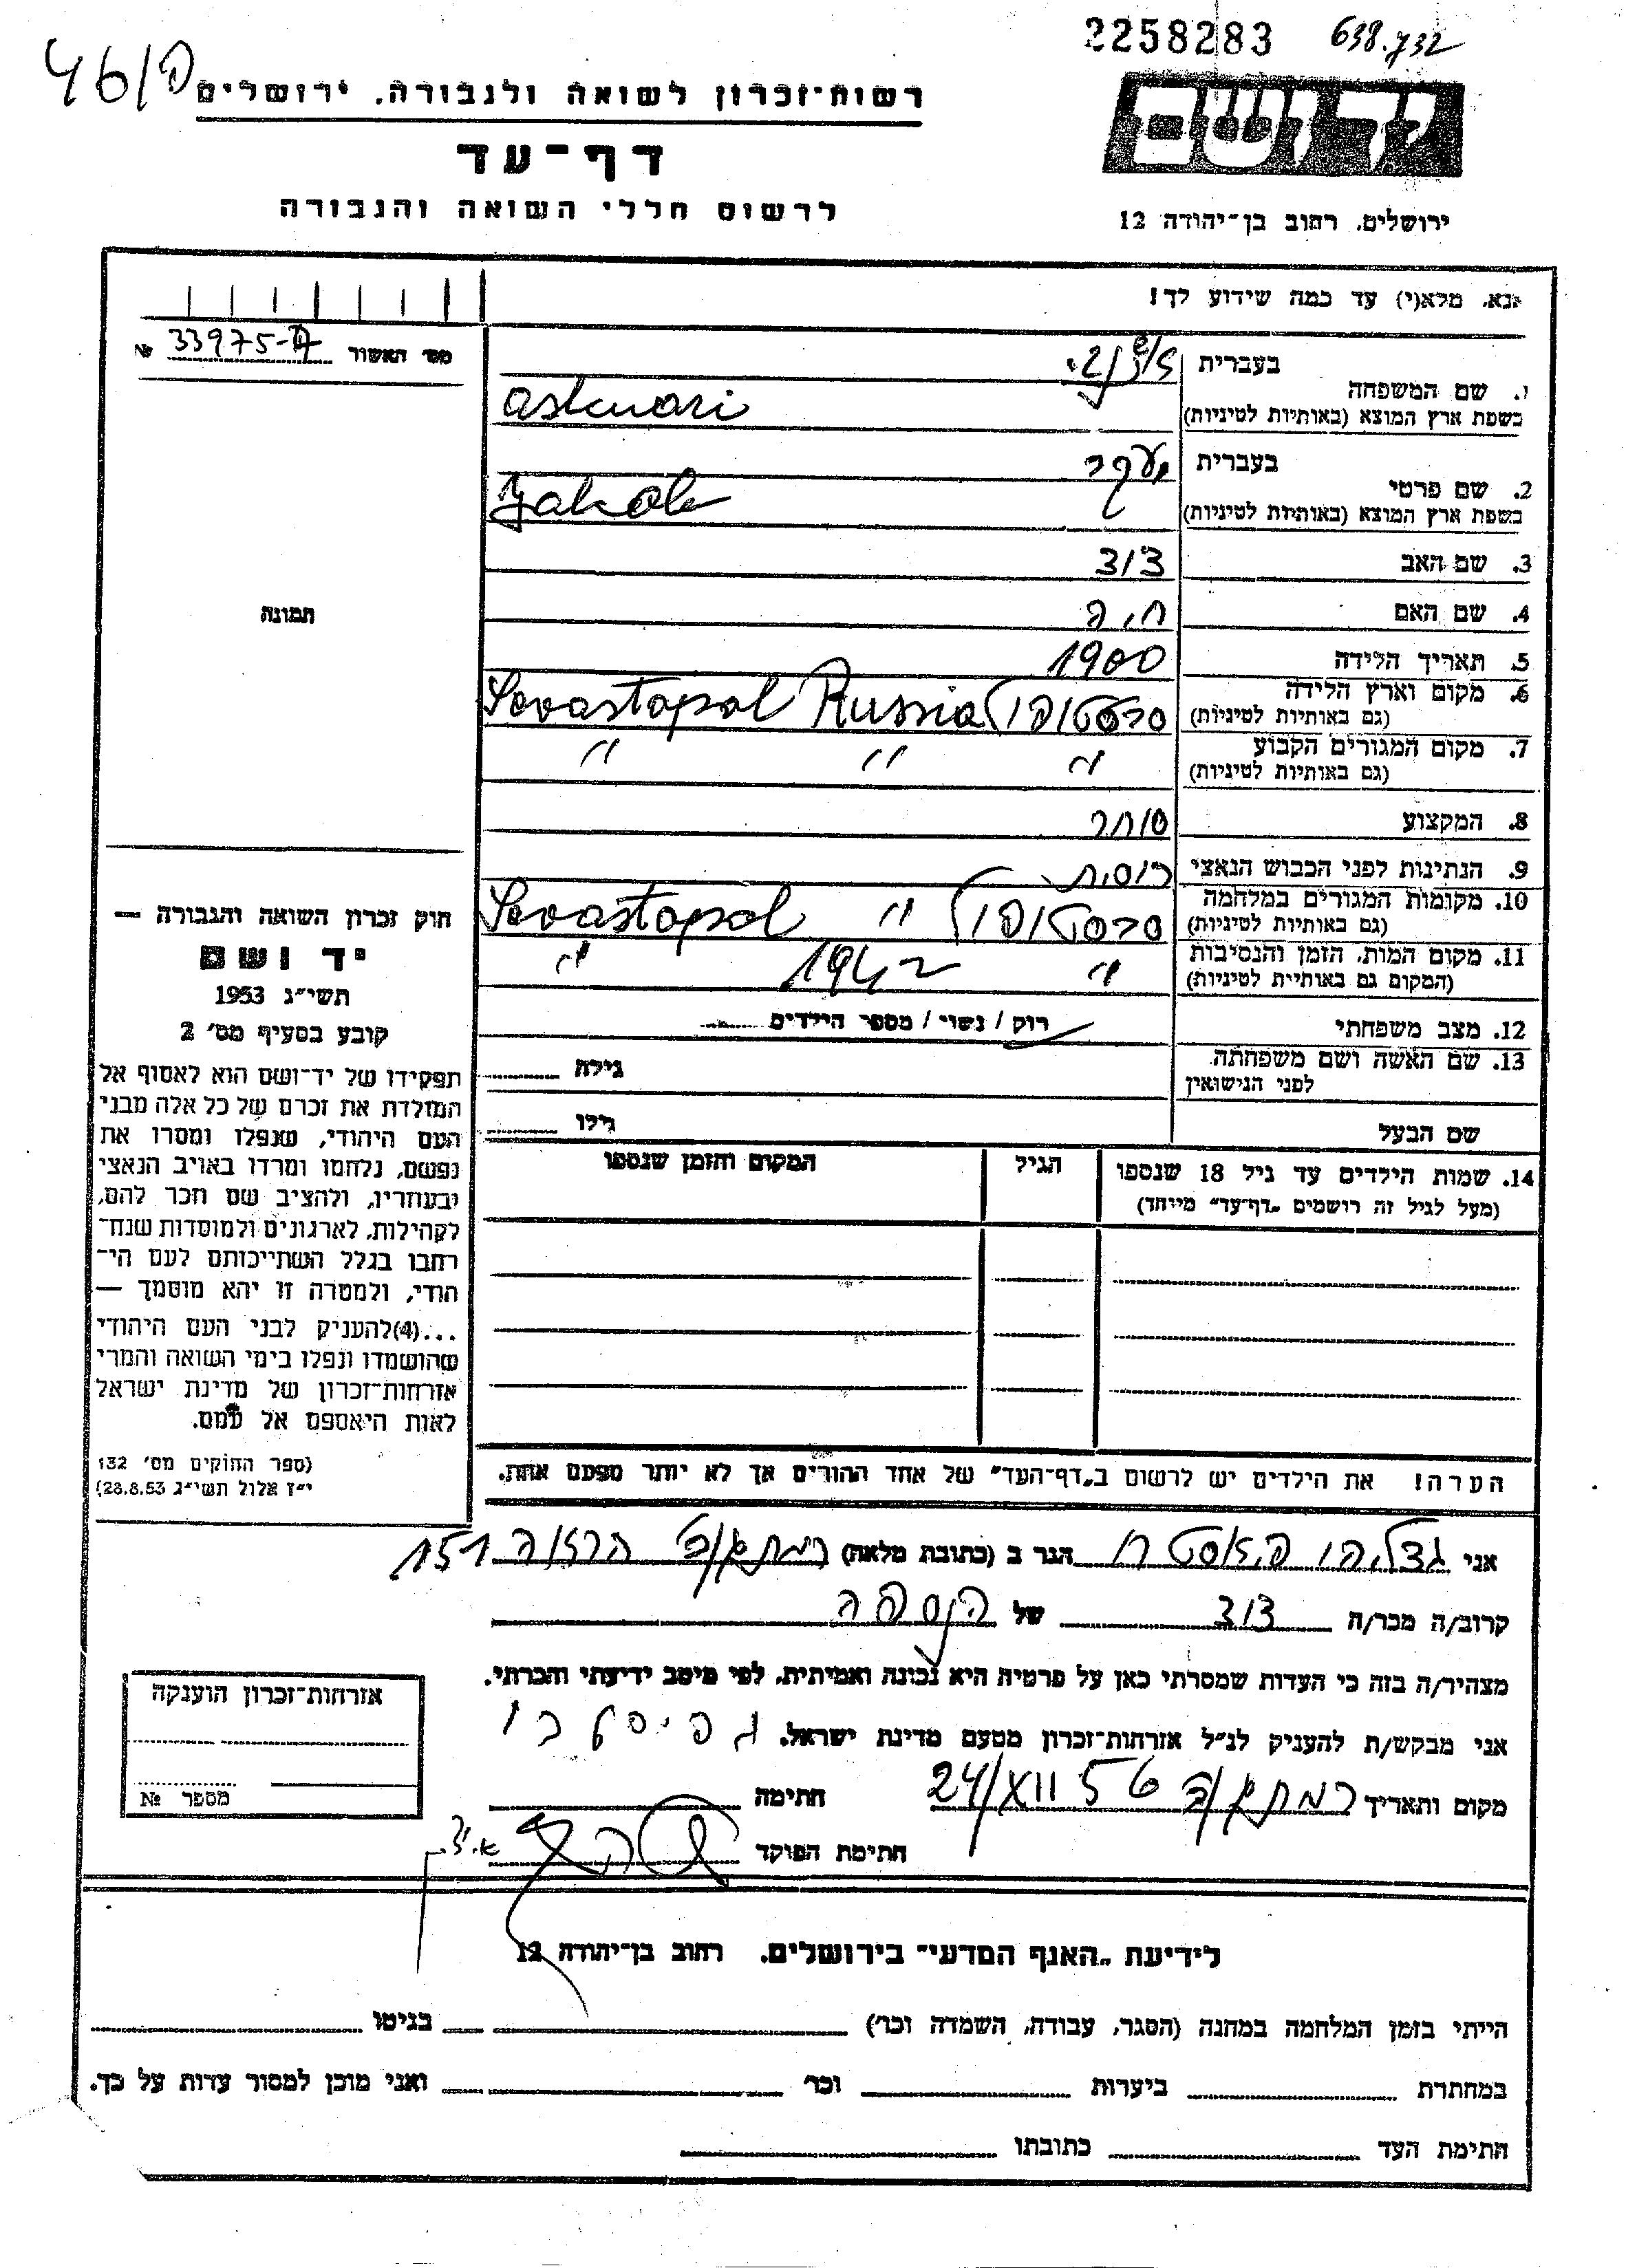 2258283 638.732
46/פ
רשות־זכרון לשואה ולגבורה, ירושלים
יד ושם
דף־עד
לרשום חללי השואה והגבורה
ירושלים, רחוב בן־יהודה 12
אנא, מלא(י) עד כמה שידוע לך!
מס׳ האשור 33975-ק №
1. שם המשפחה בעברית
בשפת ארץ המוצא (באותיות לטיניות) askenari
2. שם פרטי בעברית יעקב
בשפת ארץ המוצא (באותיות לטיניות) Jakob
3. שם האב דוד
4. שם האם חיה
תמונה
5. תאריך הלידה 1900
6. מקום וארץ הלידה (גם באותיות לטיניות) סבסטופול Sevastopol Russia
7. מקום המגורים הקבוע (גם באותיות לטיניות) " " "
8. המקצוע סוחר
9. הנתינות לפני הכבוש הנאצי רוסית
10. מקומות המגורים במלחמה (גם באותיות לטיניות) סבסטופול " Sevastopol
11. מקום המות, הזמן והנסיבות (המקום גם באותיות לטיניות) " 1942 "
12. מצב משפחתי רוק / נשוי / מספר הילדים
13. שם האשה ושם משפחתה לפני הנישואין גילה
שם הבעל גילו
14. שמות הילדים עד גיל 18 שנספו הגיל המקום והזמן שנספו
(מעל לגיל זה רושמים „דף־עד״ מיוחד)
חוק זכרון השואה והגבורה —
יד ושם
תשי״ג 1953
קובע בסעיף מס׳ 2
תפקידו של יד־ושם הוא לאסוף אל
המולדת את זכרם של כל אלה מבני
העם היהודי, שנפלו ומסרו את
נפשם, נלחמו ומרדו באויב הנאצי
ובעוזריו, ולהציב שם וזכר להם,
לקהילות, לארגונים ולמוסדות שנח־
רבו בגלל השתייכותם לעם הי־
הודי, ולמטרה זו יהא מוסמך —
...(4)להעניק לבני העם היהודי
שהושמדו ונפלו בימי השואה והמרי
אזרחות־זכרון של מדינת ישראל
לאות היאספם אל עמם.
(ספר החוקים מס׳ 132
י״ז אלול תשי״ג 28.8.53)
הערה! את הילדים יש לרשום ב„דף־העד״ של אחד ההורים אך לא יותר מפעם אחת.
אני הגר ב (כתובת מלאה) רמת גן הרואה 151
קרוב/ה מכר/ה דוד של הנספה
מצהיר/ה בזה כי העדות שמסרתי כאן על פרטיה היא נכונה ואמיתית, לפי מיטב ידיעתי והכרתי.
אני מבקש/ת להעניק לנ״ל אזרחות־זכרון מטעם מדינת ישראל.
מקום ותאריך רמת גן 24/XII 56 חתימה
חתימת הפוקד
אזרחות־זכרון הוענקה
מספר №
לידיעת „האגף המדעי״ בירושלים, רחוב בן־יהודה 12
הייתי בזמן המלחמה במחנה (הסגר, עבודה, השמדה וכר׳) בגיטו
במחתרת ביערות וכר׳ ואני מוכן למסור עדות על כך.
חתימת העד כתובתו